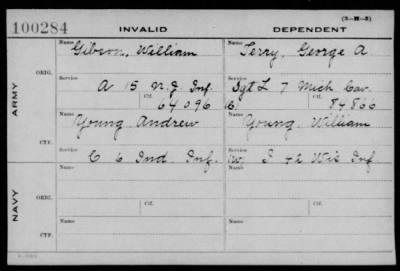 (3-W-3)
100284 INVALID DEPENDENT
Name Name
Gibson, William Terry, George A.
ORIG. Service Service
A 15 N.J. Inf. Sgt L 7 Mich Cav.
ARMY Ctf. Ctf.
64096 C. 84866
Name Name
Young Andrew Young, William
CTF. Service Service
C 6 Ind. Inf. (W) I 42 Wis Inf
Name Ctf. Name Ctf.
ORIG.
NAVY
Name Name
CTF.